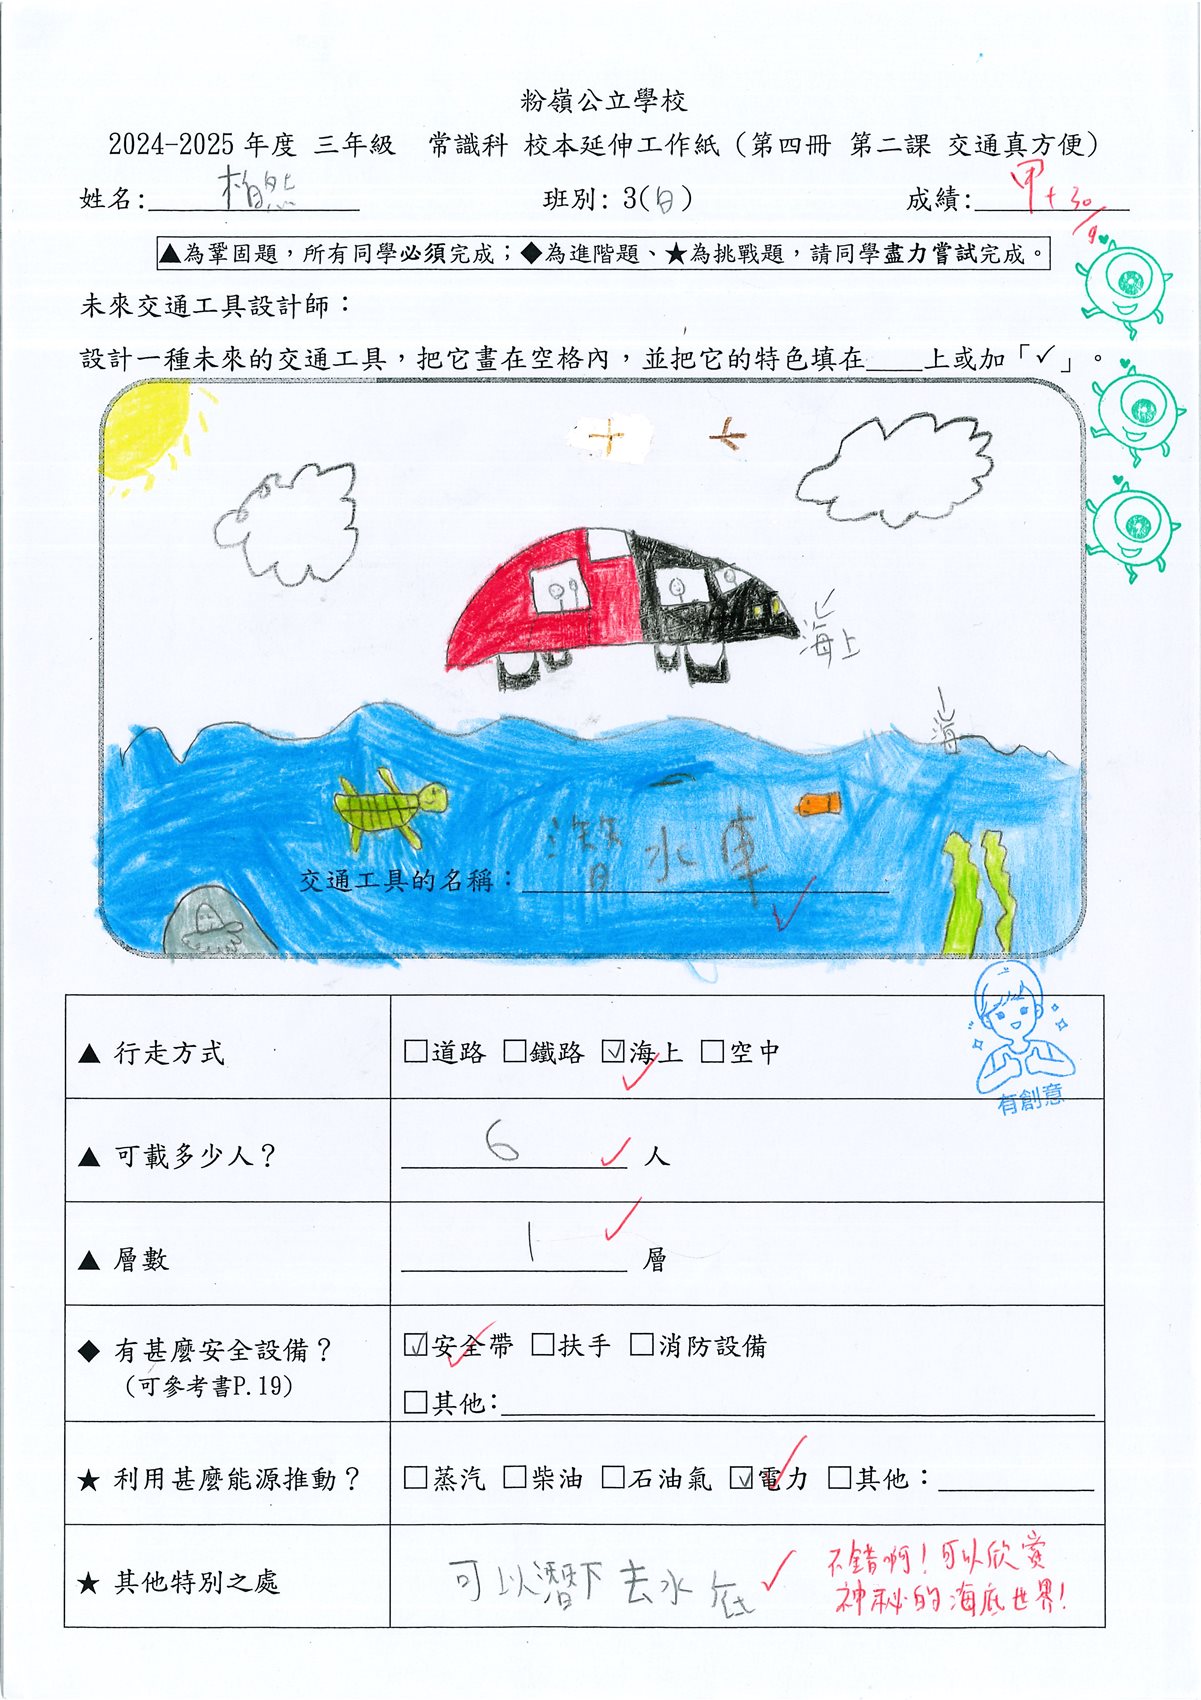 粉嶺公立學校
2024-2025 年度 三年級 常識科 校本延伸工作紙 (第四冊 第二課 交通真方便)
姓名: 柏然 班別: 3(日) 成績: 甲+30/9
▲為鞏固題，所有同學必須完成；◆為進階題、★為挑戰題，請同學盡力嘗試完成。
未來交通工具設計師：
設計一種未來的交通工具，把它畫在空格內，並把它的特色填在____上或加「✓」。
海上
海
交通工具的名稱：潛水車
▲ 行走方式 □道路 □鐵路 ☑海上 □空中
有創意
▲ 可載多少人？ 6 人
▲ 層數 1 層
◆ 有甚麼安全設備？ ☑安全帶 □扶手 □消防設備
(可參考書P.19)
□其他:
★ 利用甚麼能源推動？ □蒸汽 □柴油 □石油氣 ☑電力 □其他：
★ 其他特別之處 可以潛下去水底
不錯啊！可以欣賞
神秘的海底世界！